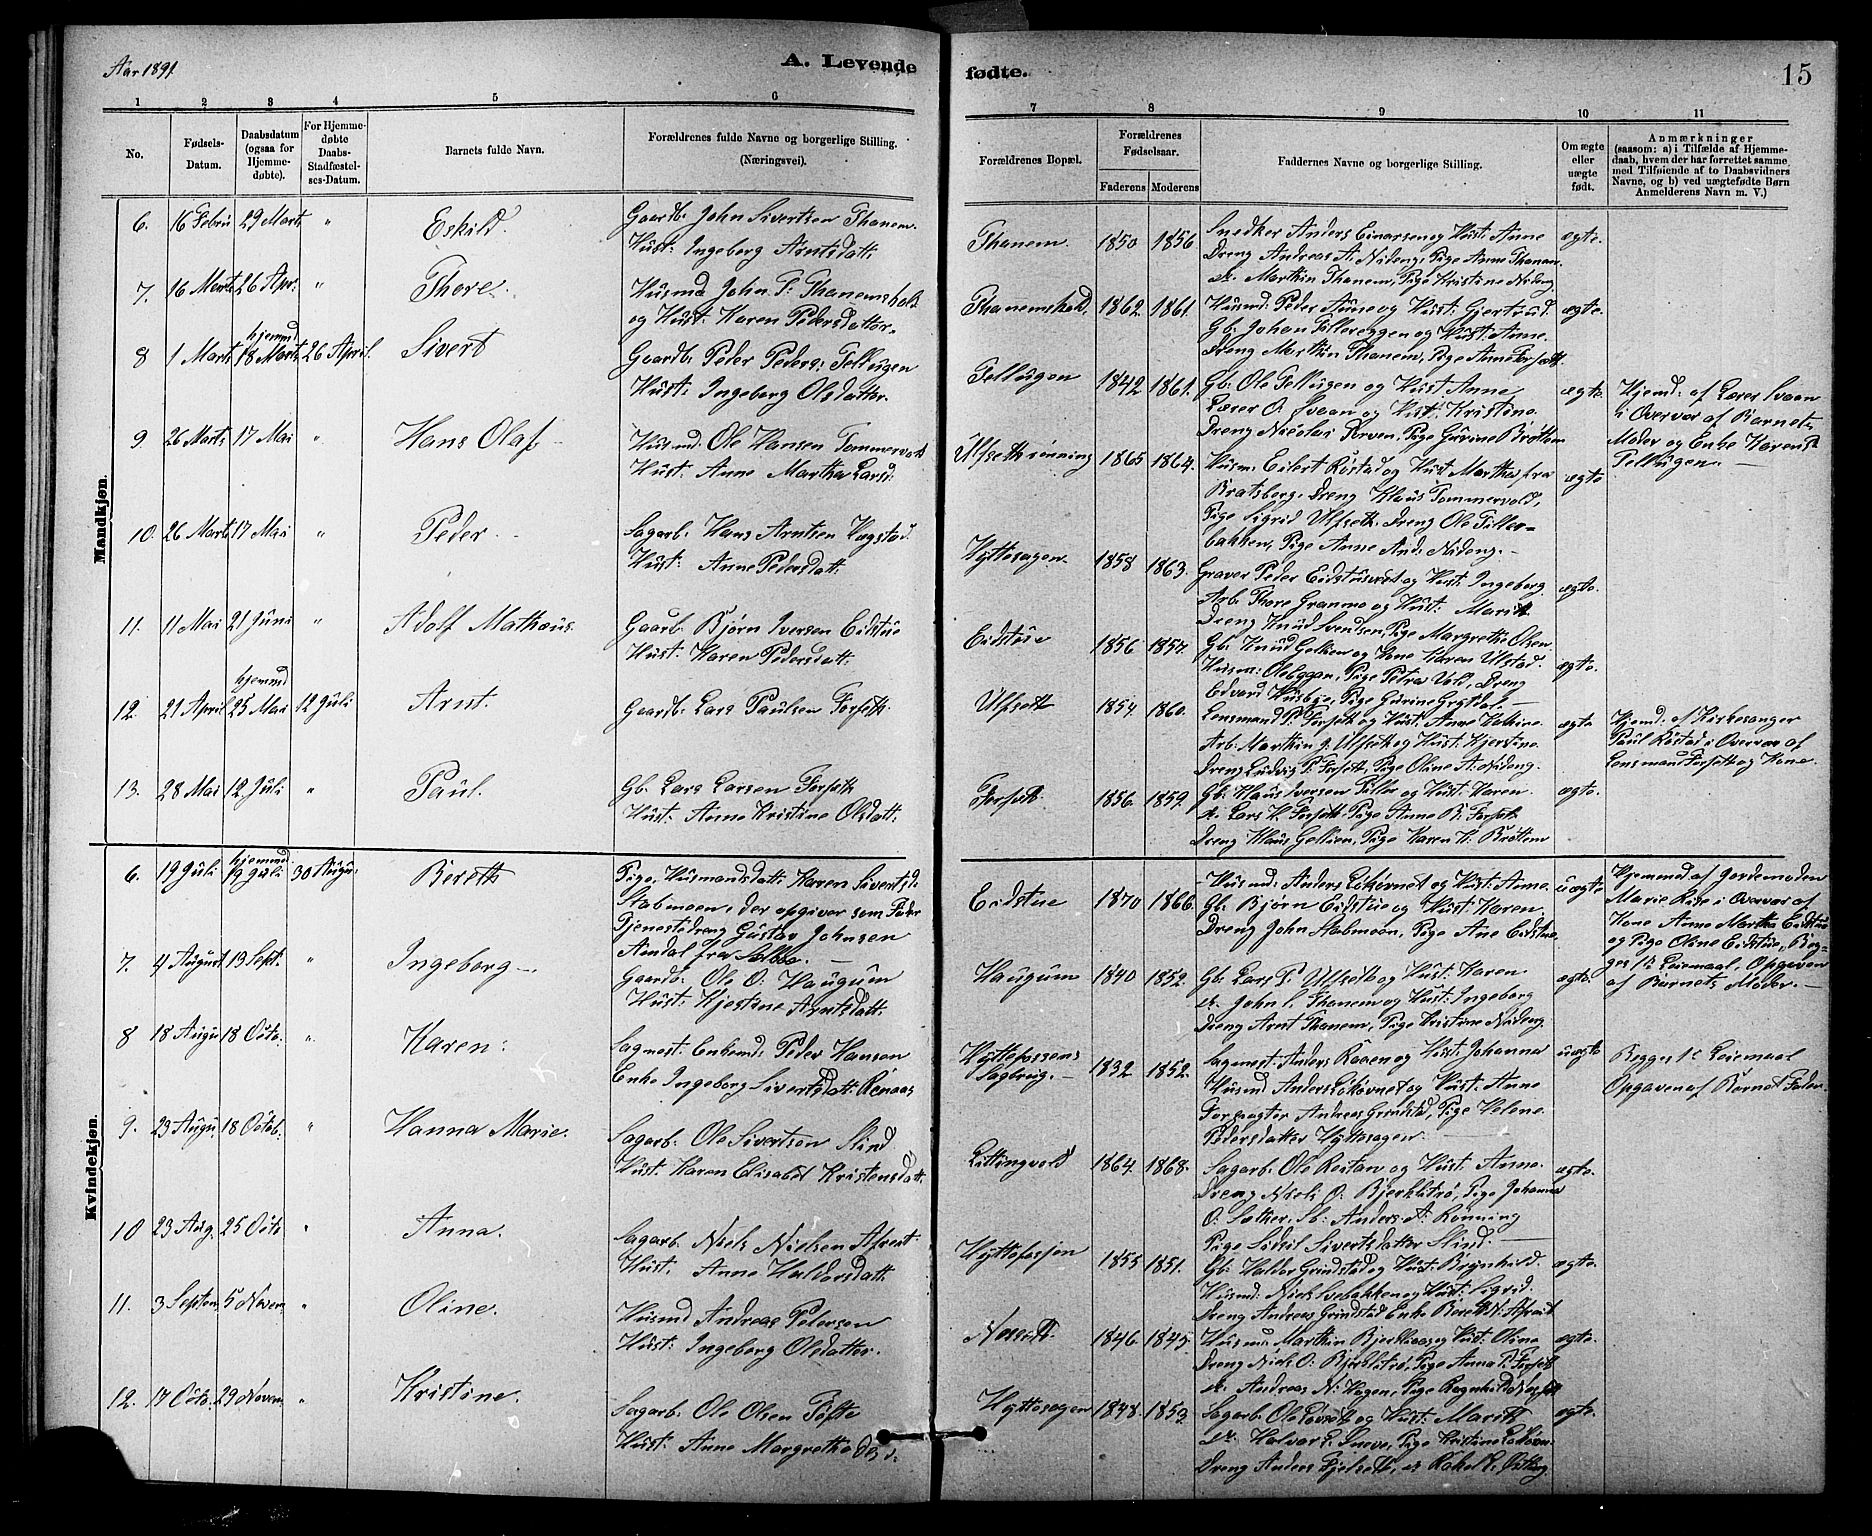 Aar 1891
A. Levende
fødte.
15
1 2 3 4 5 6 7 8 9 10 11
No.
Fødsels-Datum.
Daabsdatum (ogsaa for Hjemme-døbte).
For Hjemme-døbte Daabs-Stadfæstel-ses-Datum.
Barnets fulde Navn.
Forældrenes fulde Navne og borgerlige Stilling.
(Næringsvei).
Forældrenes Bopæl.
Forældrenes Fødselsaar.
Faderens Moderens
Faddernes Navne og borgerlige Stilling.
Om ægte eller uægte født.
Anmærkninger
(saasom: a) i Tilfælde af Hjemme-
daab, hvem der har forrettet samme
med Tilføiende af to Daabsvidners
Navne, og b) ved uægtefødte Børn
Anmelderens Navn m. V.)
Mandkjøn.
6. 16 Febru 29 Marts " Eskild. Gaardb: John Sivertsen Thanem.
Hust: Ingeborg Arntsdatt:
Thanem. 1850 1856 Snedker Anders Einarsen og Hust: Anne
Dreng Andreas A. Nideng, Pige Anne Thanem.
Marthin Thanem, Pige Kristine Nideng
ægte.
7. 16 Marts 26 Apr: " Thore. Husmd John P: Thanemshald
og Hust: Karen Pedersdatter.
Thanemshald. 1862 1861. Husmd: Peder og Hust: Gjertrud.
Gb: Johan Tillereggen og Hust: Anne.
Dreng Marthin Thanem, Pige Anne
ægte.
8 1 Marts hjemmd 18 Marts 26 April. Sivert Gaardb: Peder Peders: Tellugen
Hust: Ingeborg Olsdatter.
Tellugen 1842 1861. Gb: Ole Tellugen og Hust: Anne
Lærer O. Svaan og Hust: Kristine.
Dreng Nicolai Torven, Pige Gurine Brøttem
ægte. Hjemd: af Lærer Svaan
i Overvær af Barnets
Moder og Enke Karen P.
Tellugen. —
9 26 Marts 17 Mai " Hans Olaf — Husmd: Ole Hansen Tommervold
Hust: Anne Martha Larsd:
Ulfsethrønning 1865 1864. Husm: Eilert Røstad og Hust Martha, fra
Bratsberg, Dreng Klaus Tommervold,
Pige Sigrid Ulfseth. Dreng Ole Tiller-
bakken, Pige Anne And: Nideng. —
ægte
10. 26 Marts 17 Mai " Peder — Sagarb: Hans Arntsen Vagstad
Hust: Anne Pedersdatt:
Hyttesagen 1858 1863. Graver Peder Eidstuvset og Hust: Ingeborg
Arb: Thore Granmo og Hust: Marit
Dreng Knud Svendsen, Pige Margrethe Olsen
ægte.
11. 11 Mai 21 Juni " Adolf Mathæus. Gaarb: Bjørn Iversen Eidstue
Hust: Karen Pedersdatt:
Eidstue 1856 1857. Gb: Knud Gelken og Kone Karen Ulstad.
Husm: Ole Eggen, Pige Petra Vold, Dreng
Edvard Husbye, Pige Gurine Grøtdal. —
ægte.
12. 21 April hjemmd 25 Mai 12 Juli Arnt. Gaardb: Lars Paulsen Forseth.
Ulfseth 1854. 1860. Lensmand P. Forseth og Hust: Anne Kathrine.
Arb: Marthin J. Ulfseth og Hust: Kjerstine.
Dreng Ludvig P. Forseth, Pige Oline A. Nideng.
ægte Hjemd: af Kirkesanger
Paul Røstad i Overvær af
Lensmand Forseth og Kone.
13. 28 Mai 12 Juli " Paul. Gb: Lars Larsen Forseth
Hust: Anne Kristine Olsdatt:
Forseth. 1856. 1859. Gb: Klaus Iversen Tiller og Hust: Karen.
Lars H. Forseth. Pige Anne B: Forseth
Dreng Klaus Gellien, Pige Karen H: Brøttem
ægte.
Kvindekjøn.
6. 19 Juli hjemmd 19 Juli 30 Augu: Bereth Pige, Husmandsdatt: Karen Sivertsd:
Stabmoen, der opgiver som Fader
Tjenestedreng Gustav Johnsen
Aindal fra Selbo. —
Eidstue 1870 1866. Husmd: Anders Lokøvnet og Hust: Anne.
Gb: Bjørn Eidstue og Hust: Karen.
Dreng John Stabmoen, Pige Ane Eidstue
uægte Hjemmd af Jordemoden
Marie Kise i Overvær af
Kone Anne Martha Eidstue
og Pige Oline Eidstue, Beg-
ges 1ste Leiemaal, Opgaven
af Barnets Moder. —
7. 4 August 13 Sept: " Ingeborg —. Gaardb: Ole O. Haugum
Hust: Kjestine Arntsdatt:
Haugum 1840 1852. Gb: Lars P. Ulfseth og Hust: Karen
John C. Thanem og Hust: Ingeborg
Dreng Arnt Thanem, Pige Kristine Nideng.
ægte.
8 18 Augu 18 Octo. " Karen. Sagmest: Enkemd: Peder Hansen
Enke Ingeborg Sivertsdatt: Renaas
Hyttefossens
Sagbrug. — 1832 1852. Sagmest: Anders Raaen og Hust: Johanna
Husmd Anders Lokøvnet og Hust: Anne
Forpagter Andreas Grindstad, Pige Helene
Pedersdatter Hyttesagen.
uægte Begges 1ste Leiemaal
Opgaven af Barnets Fader
9. 23 Augu. 18 Octob. " Hanna Marie. Sagarb: Ole Sivertsen Slind
Hust: Karen Elisabet Kristensdatt.
Littingvold 1864. 1868. Sagarb: Ole Restan og Hust: Anne.
Dreng Nikols O. Bjerklitrø, Pige Johanna
O: Sæther, Sb: Anders A: Rønning
Pige Sidsil Sivertsdatter Slind. —
ægte.
10 23 Aug. 25 Octo " Anna. Sagarb. Niels Nielsen Afvest.
Hust. Anne Haldorsdatt.
Hyttefossen 1855 1851. Gb: Haldor Grindstad og Hust: Brynhild.
Husmd: Niels Svebakken og Hust: Sigrid.
Dreng Andreas Grindstad Enke Bereth N: Afveit
ægte.
11. 3 Septem 5 Novem " Oline. Husmd Andreas Pedersen
Hust: Ingeborg Olsdatter.
1846 1845. Husmd: Marthin Bjerklias og Hust: Oline
Dreng Niels O. Bjerklitrø, Pige Anna P. Forseth
Andreas N. Hagen, Pige Ragnhild
ægte.
12. 17 Octo. 29 Novem " Kristine. Sagarb: Ole Olsen Tofte
Hust: Anne Margretha
Hyttesagen 1848 1859. Sagarb: Ole og Hust: Marith
Halvar L. Sneve, Pige Kristine
Dreng Anders Fjelseth, Rakel L. Østberg
ægte.